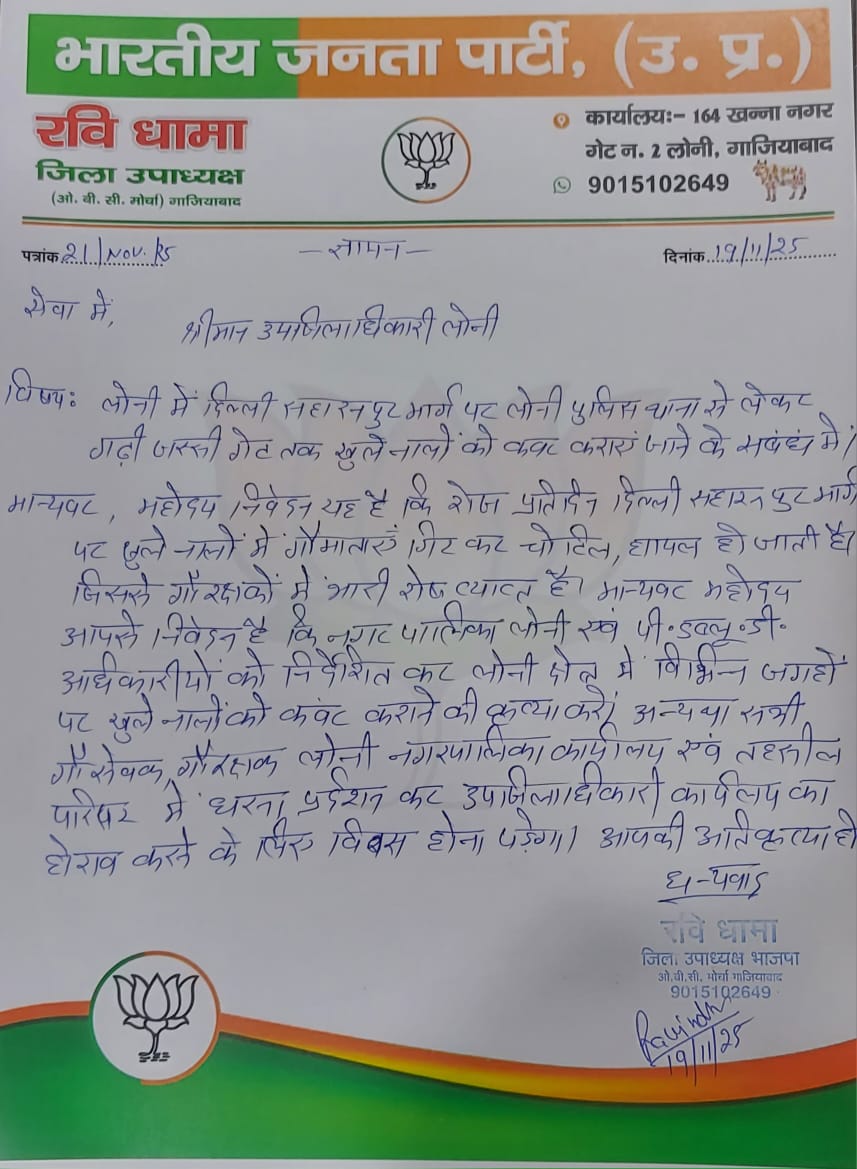 भारतीय जनता पार्टी, (उ. प्र.)
रवि धामा
जिला उपाध्यक्ष
(ओ. बी. सी. मोर्चा) गाजियाबाद
कार्यालयः- 164 खन्ना नगर
गेट न. 2 लोनी, गाजियाबाद
9015102649
पत्रांक 21/Nov./25
-ज्ञापन-
दिनांक 19/11/25
सेवा में,
श्रीमान उपजिलाधिकारी लोनी
विषय: लोनी में दिल्ली सहारनपुर मार्ग पर लोनी पुलिस थाना से लेकर
गढ़ी जस्सी गेट तक खुले नालों को कवर कराएं जाने के सबंध में।
मान्यवर, महोदय निवेदन यह है कि रोज प्रतिदिन दिल्ली सहारनपुर मार्ग
पर खुले नालों में गौमाताएं गिर कर चोटिल, घायल हो जाती है।
जिससे गौरक्षकों में भारी रोष व्याप्त है। मान्यवर महोदय
आपसे निवेदन है कि नगर पालिका लोनी एवं पी.डब्लू.डी.
अधिकारीयों को निर्देशित कर लोनी क्षेत्र में विभिन्न जगहों
पर खुले नालों को कवर कराने की कृप्या करें। अन्यथा सभी
गौ सेवक, गौरक्षक लोनी नगरपालिका कार्यालय एवं तहसील
परिसर में धरना प्रर्दशन कर उपजिलाधिकारी कार्यलय का
घेराव करने के लिए विवस होना पड़ेगा। आपकी अति कृप्या हो
धन्यवाद
रवि धामा
जिला उपाध्यक्ष भाजपा
ओ.बी.सी. मोर्चा गाजियाबाद
9015102649
19/11/25